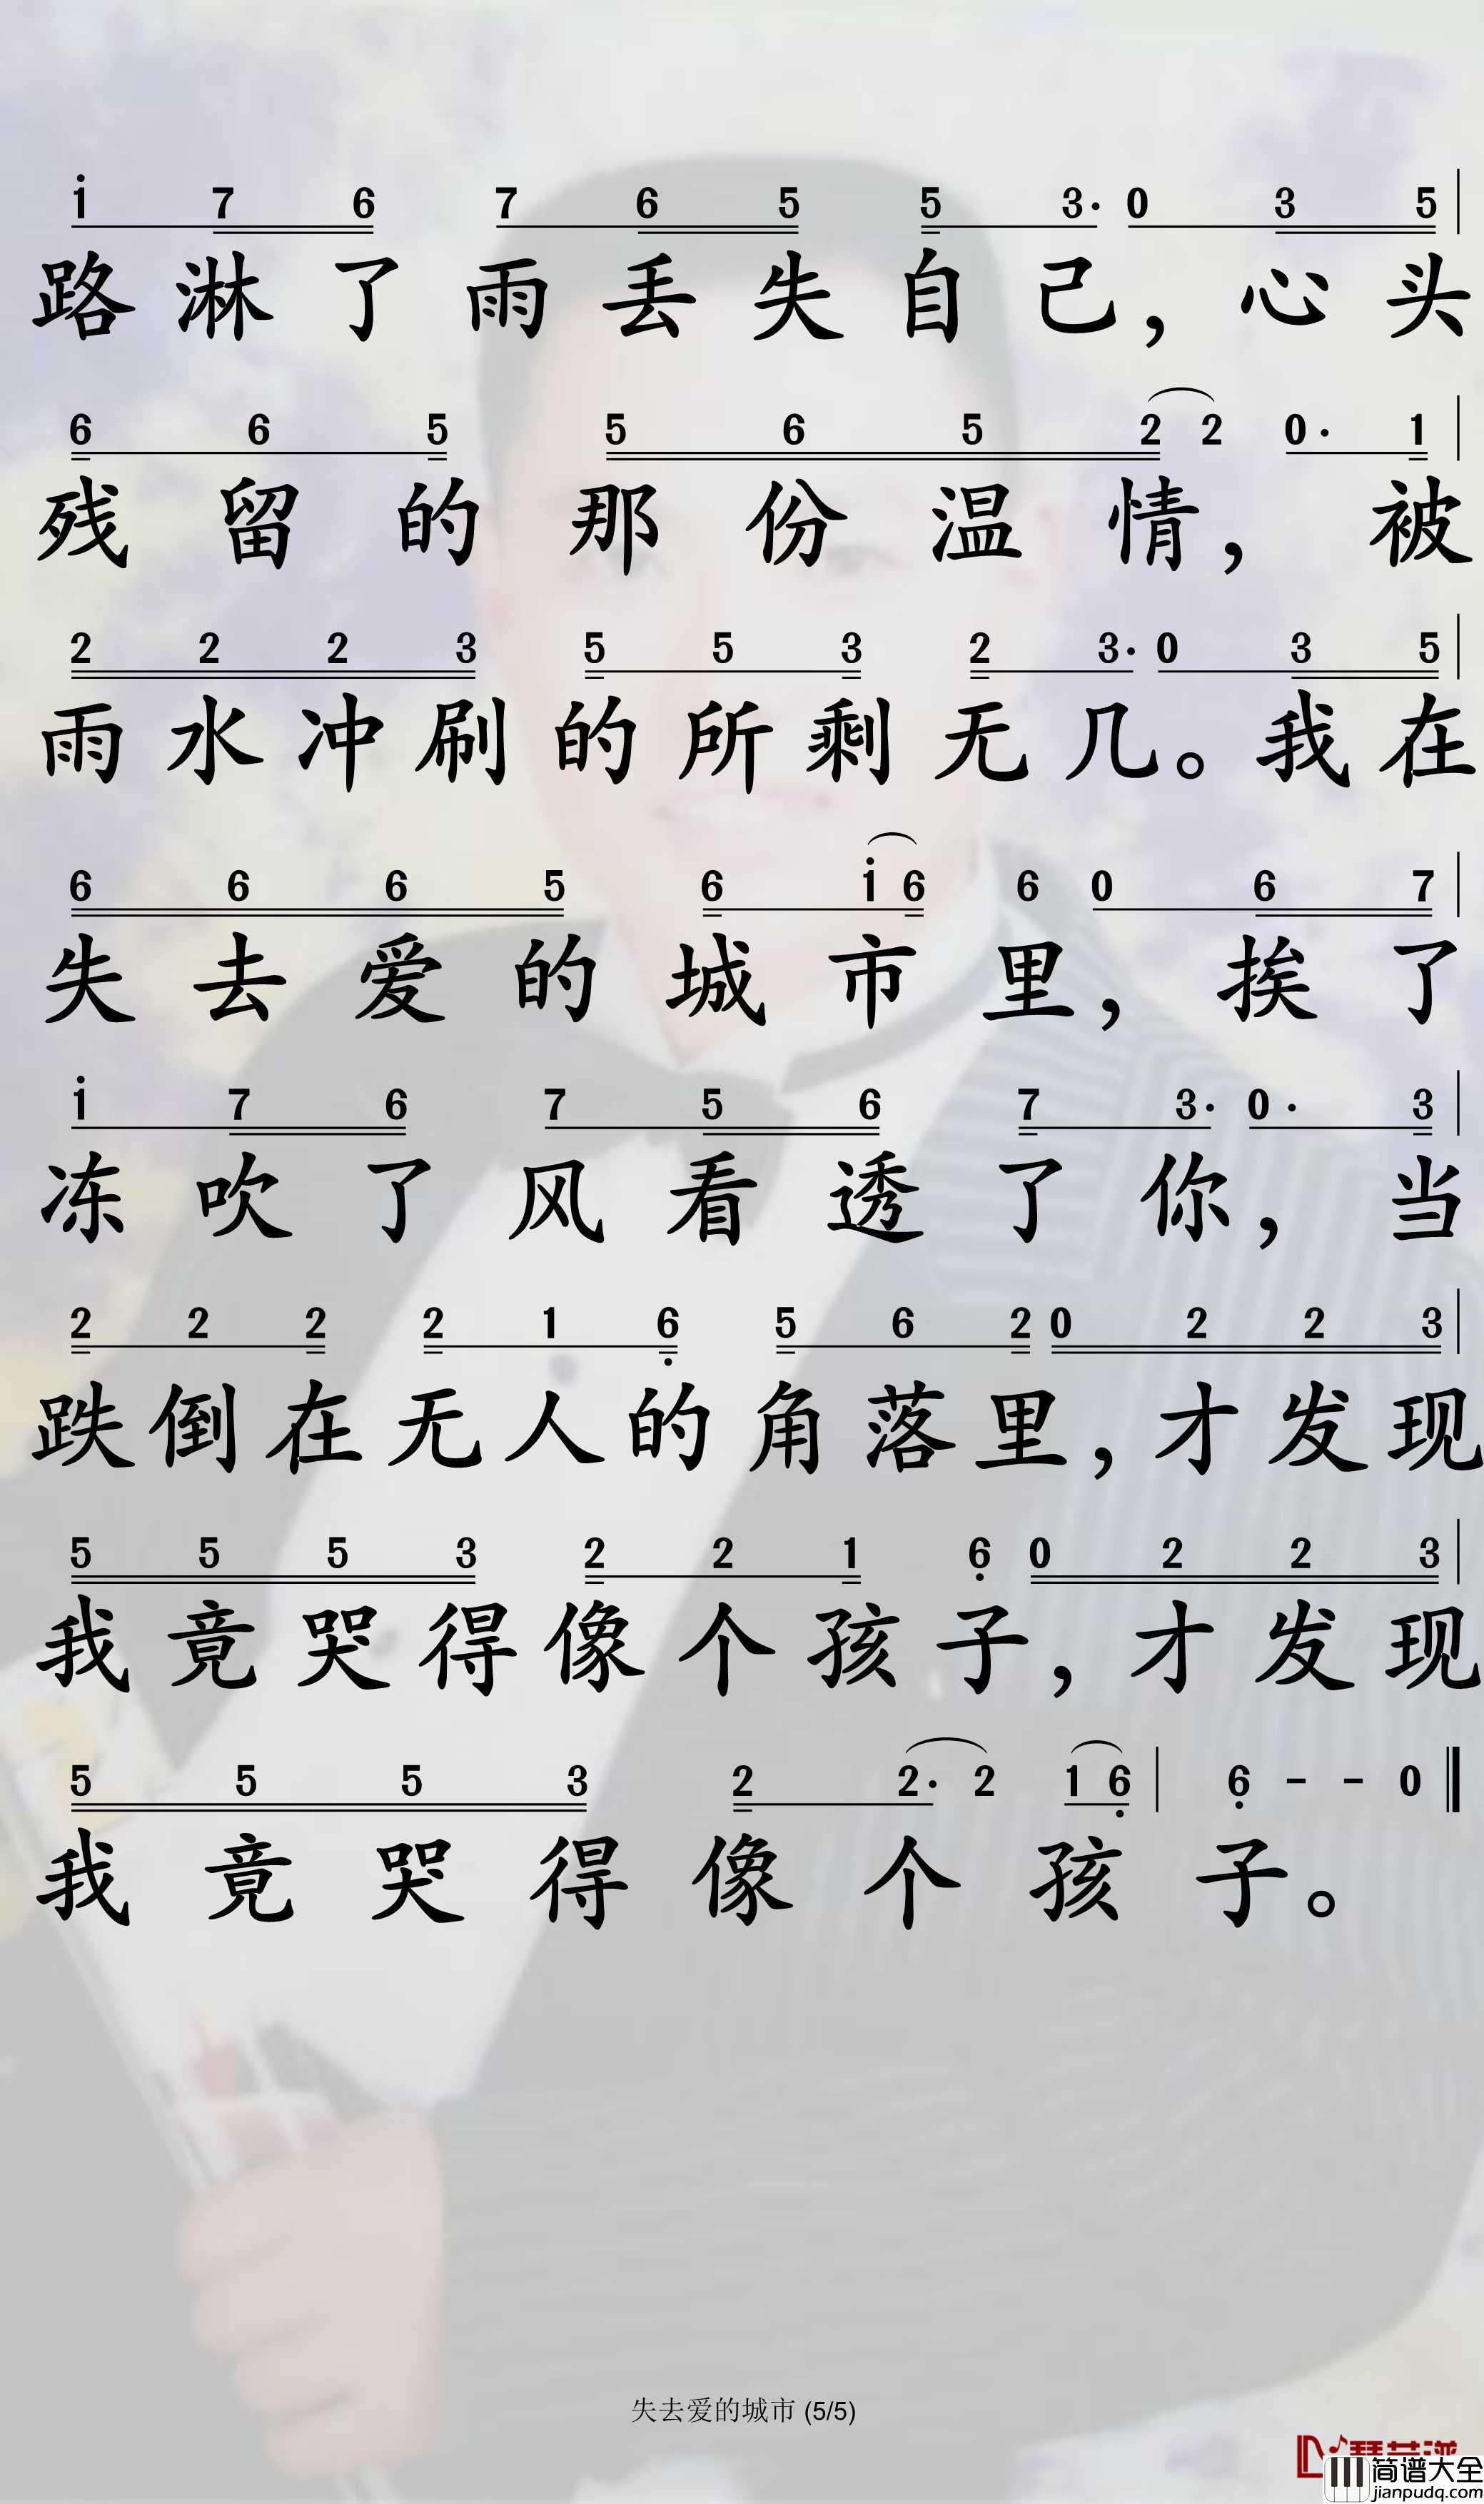 i 7 6 7 6 5 5 3· 0 3 5
路淋了雨丢失自己，心头
6 6 5 5 6 5 2 2 0· 1
残留的那份温情，被
2 2 2 3 5 5 3 2 3· 0 3 5
雨水冲刷的所剩无几。我在
6 6 6 5 6 i 6 6 0 6 7
失去爱的城市里，挨了
i 7 6 7 5 6 7 3· 0· 3
冻吹了风看透了你，当
2 2 2 2 1 6 5 6 2 0 2 2 3
跌倒在无人的角落里，才发现
5 5 5 3 2 2 1 6 0 2 2 3
我竟哭得像个孩子，才发现
5 5 5 3 2 2· 2 1 6 | 6 - - 0
我竟哭得像个孩子。
失去爱的城市 (5/5)
简谱大全
jianpudq.com